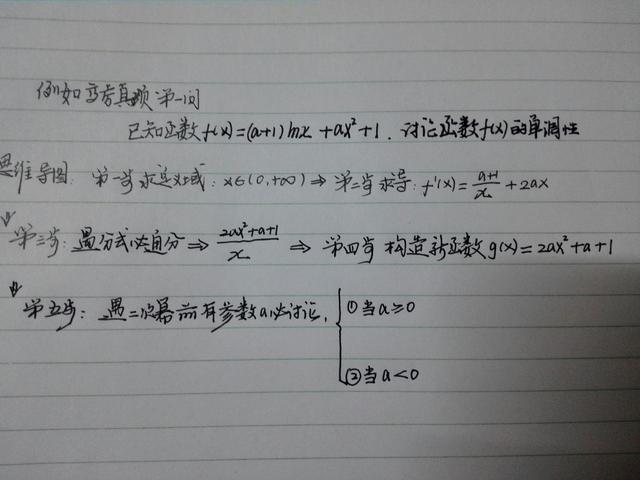 例如高考真题第一问
已知函数f(x)=(a+1)lnx+ax²+1.讨论函数f(x)的单调性
思维导图:第一步求定义域:x∈(0,+∞)⇒第二步求导:f'(x)=\frac{a+1}{x}+2ax
⇓第三步:遇分式必通分⇒\frac{2ax²+a+1}{x}⇒第四步构造新函数g(x)=2ax²+a+1
⇓第五步:遇二次幂前有参数a必讨论,{①当a≥0
②当a<0